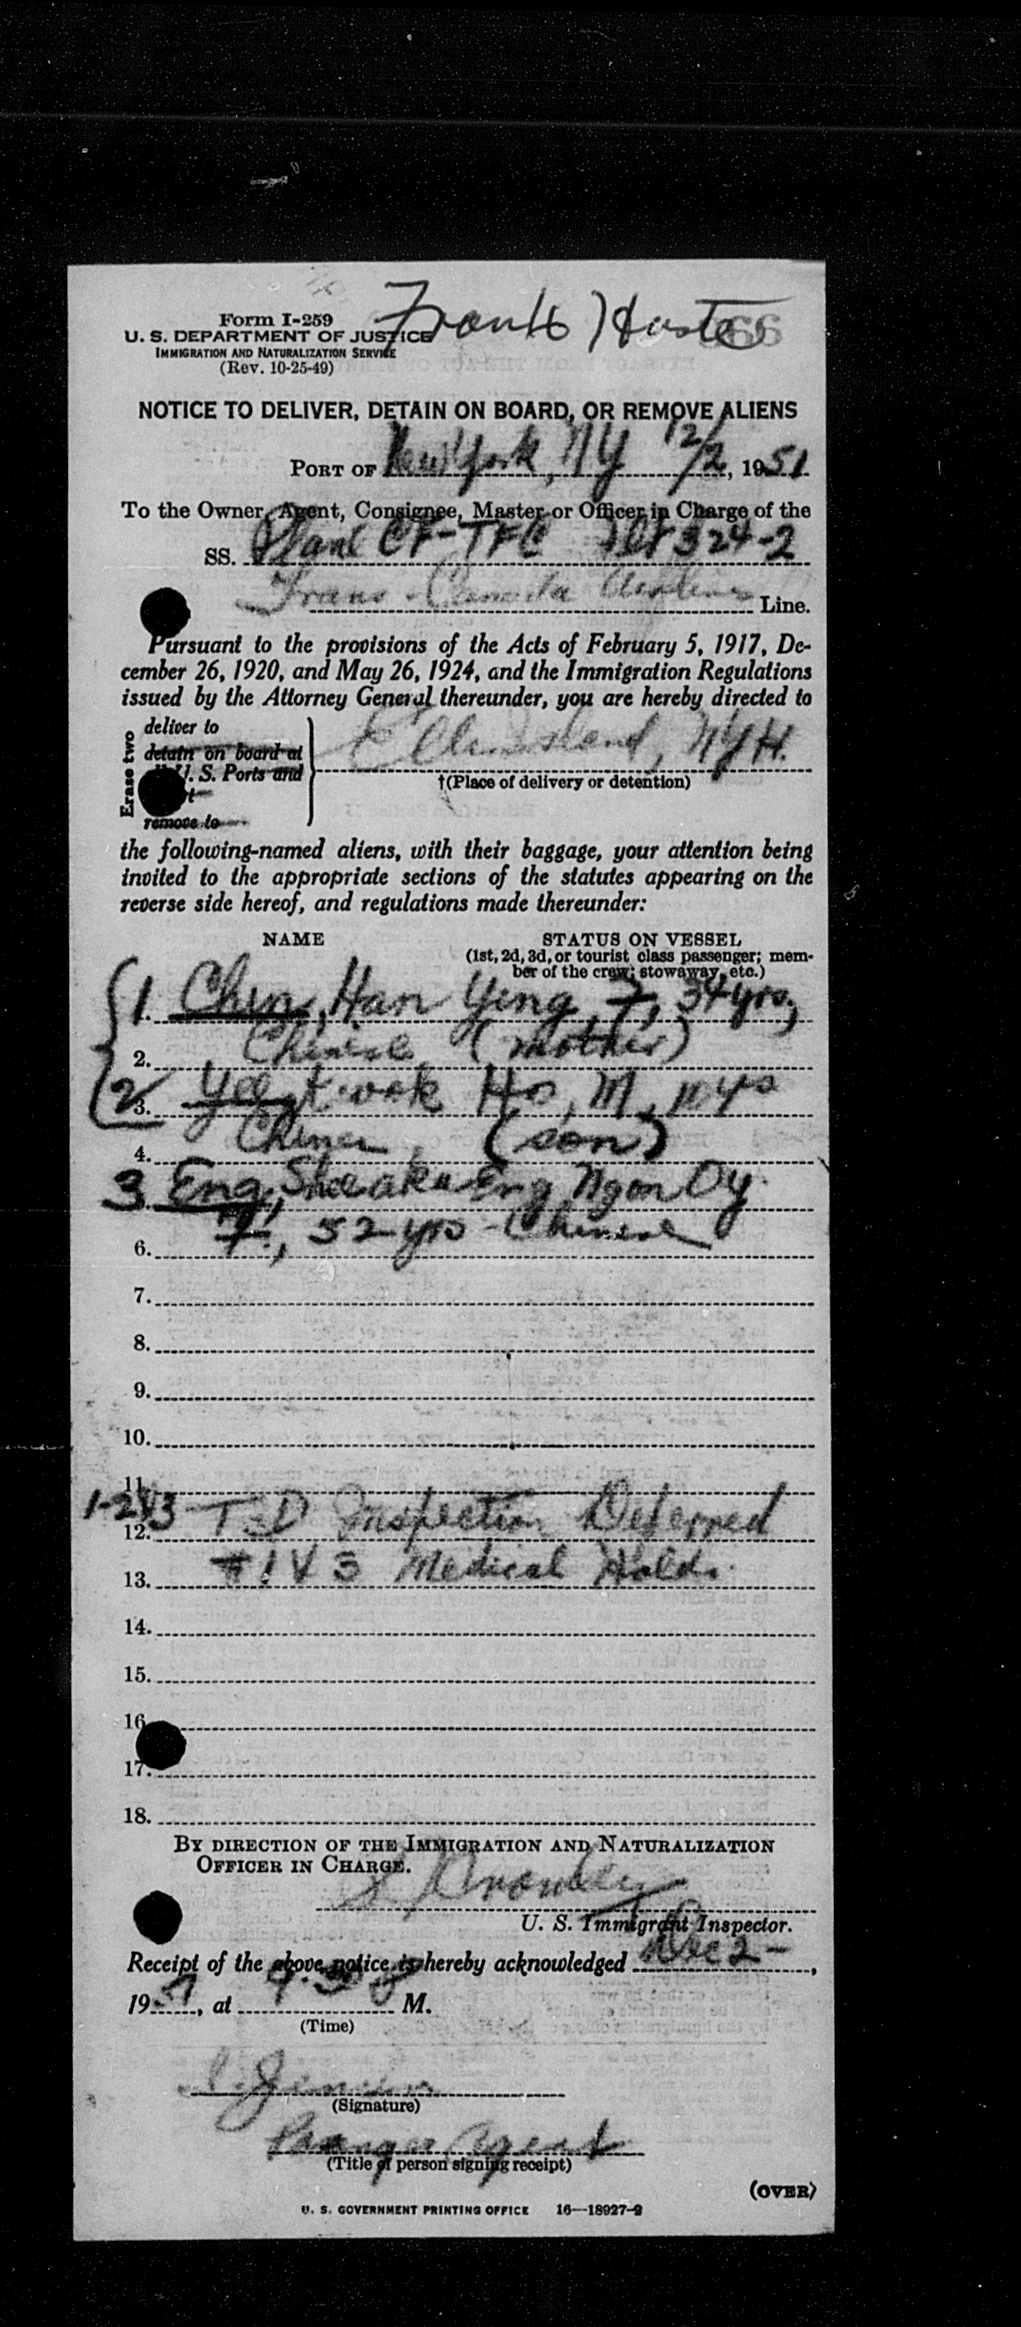 Form I-259
U. S. DEPARTMENT OF JUSTICE
IMMIGRATION AND NATURALIZATION SERVICE
(Rev. 10-25-49)
Frank
66
NOTICE TO DELIVER, DETAIN ON BOARD, OR REMOVE ALIENS
PORT OF New York, NY 12/2, 1951
To the Owner, Agent, Consignee, Master or Officer in Charge of the
SS. Plane CF-TFC Flt 324-2
Trans-Canada Airlines Line.
Pursuant to the provisions of the Acts of February 5, 1917, De-
cember 26, 1920, and May 26, 1924, and the Immigration Regulations
issued by the Attorney General thereunder, you are hereby directed to
Erase two
deliver to
detain on board at
U. S. Ports and
remove to
Ellis Island, NYH.
†(Place of delivery or detention)
the following-named aliens, with their baggage, your attention being
invited to the appropriate sections of the statutes appearing on the
reverse side hereof, and regulations made thereunder:
NAME STATUS ON VESSEL
(1st, 2d, 3d, or tourist class passenger; mem-
ber of the crew; stowaway, etc.)
1. 1. Chin, Han Ying, F, 34 yrs,
2. Chinese (mother)
2 3. Yee, Kwok Ho, M, 10 ys
4. Chinese, (son)
3 Eng, Shee aka Eng Ngon Oy
6. F., 52 yrs - Chinese
7.
8.
9.
10.
11.
1-2&3 T-D Inspection Deferred
12.
13. #1 & 3 Medical Holds.
14.
15.
16.
17.
18.
BY DIRECTION OF THE IMMIGRATION AND NATURALIZATION
OFFICER IN CHARGE.
U. S. Immigrant Inspector.
Receipt of the above notice is hereby acknowledged Dec 2-,
1951, at M.
(Time)
(Signature)
Passenger Agent
(Title of person signing receipt)
(OVER)
U. S. GOVERNMENT PRINTING OFFICE 16—18927-2